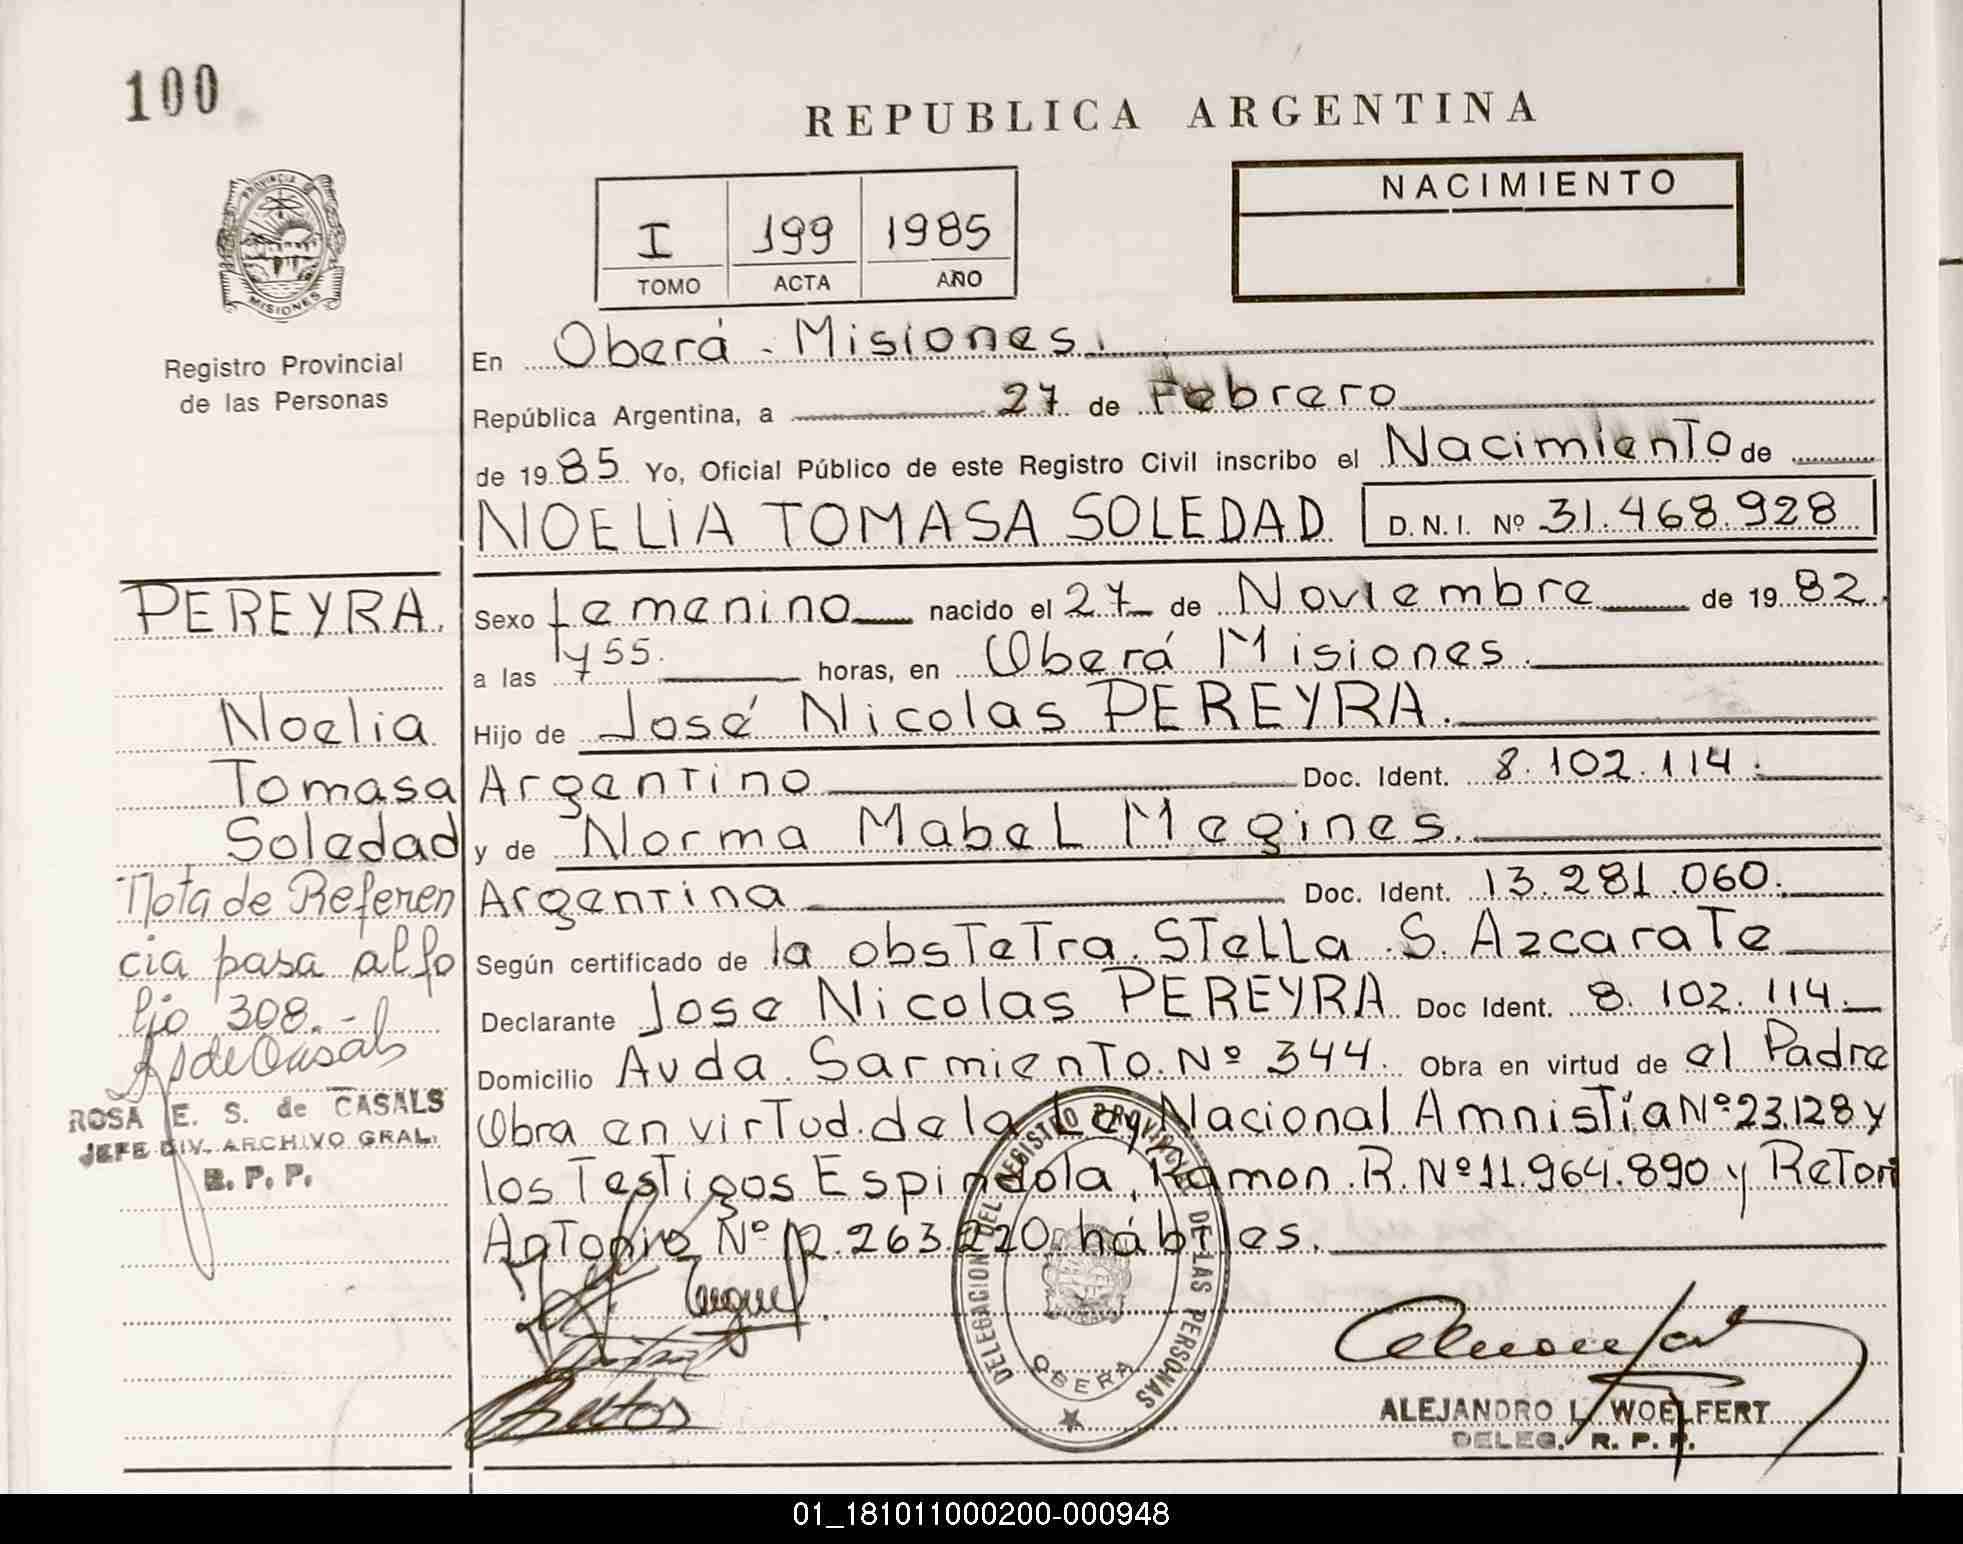 100
REPUBLICA ARGENTINA
NACIMIENTO
I 199 1985
TOMO ACTA AÑO
PROVINCIA DE
MISIONES
Registro Provincial
de las Personas
En Oberá - Misiones.
República Argentina, a 27 de Febrero
de 1985 Yo, Oficial Público de este Registro Civil inscribo el Nacimiento de
NOELIA TOMASA SOLEDAD D.N.I. Nº 31.468.928
PEREYRA.
Noelia
Tomasa
Soledad
Nota de Referen
cia pasa al fo
lio 308.-
ROSA E. S. de CASALS
JEFE DIV. ARCHIVO GRAL.
R. P. P.
Sexo femenino nacido el 27 de Noviembre de 1982.
a las 1y55. horas, en Oberá Misiones.
Hijo de José Nicolas PEREYRA.
Argentino Doc. Ident. 8.102.114.
y de Norma Mabel Megines.
Argentina Doc. Ident. 13.281.060.
Según certificado de la obstetra. Stella S. Azcarate
Declarante Jose Nicolas PEREYRA Doc Ident. 8.102.114.
Domicilio Avda. Sarmiento. Nº 344. Obra en virtud de el Padre
Obra en virtud de la Ley Nacional Amnistía Nº 23.128 y
los Testigos Espindola, Ramon. R. Nº 11.964.890 y Retori
Antonio Nº 12.263.220 hábiles.
DELEGACION DEL REGISTRO PROVINCIAL DE LAS PERSONAS
OBERA
ALEJANDRO L. WOELFERT
DELEG. R. P. P.
01_181011000200-000948